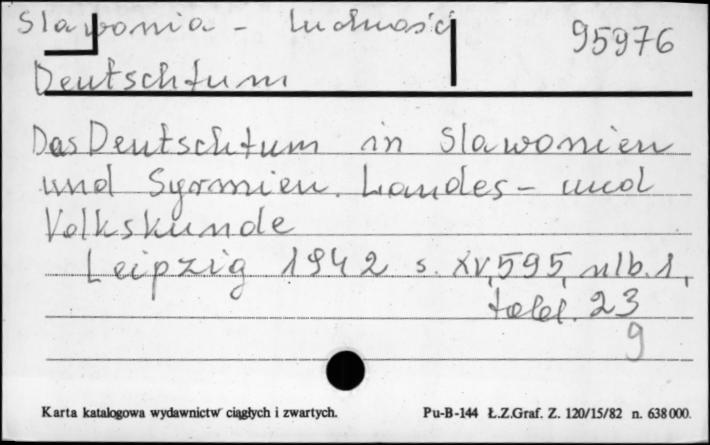 Slawonia - ludność
95976
Deutschtum
Das Deutschtum in Slawonien
und Syrmien. Landes- und
Volkskunde
Leipzig 1942 s. XV, 595, nlb. 1,
tabl. 23
9
Karta katalogowa wydawnictw ciągłych i zwartych.
Pu-B-144 Ł.Z.Graf. Z. 120/15/82 n. 638000.